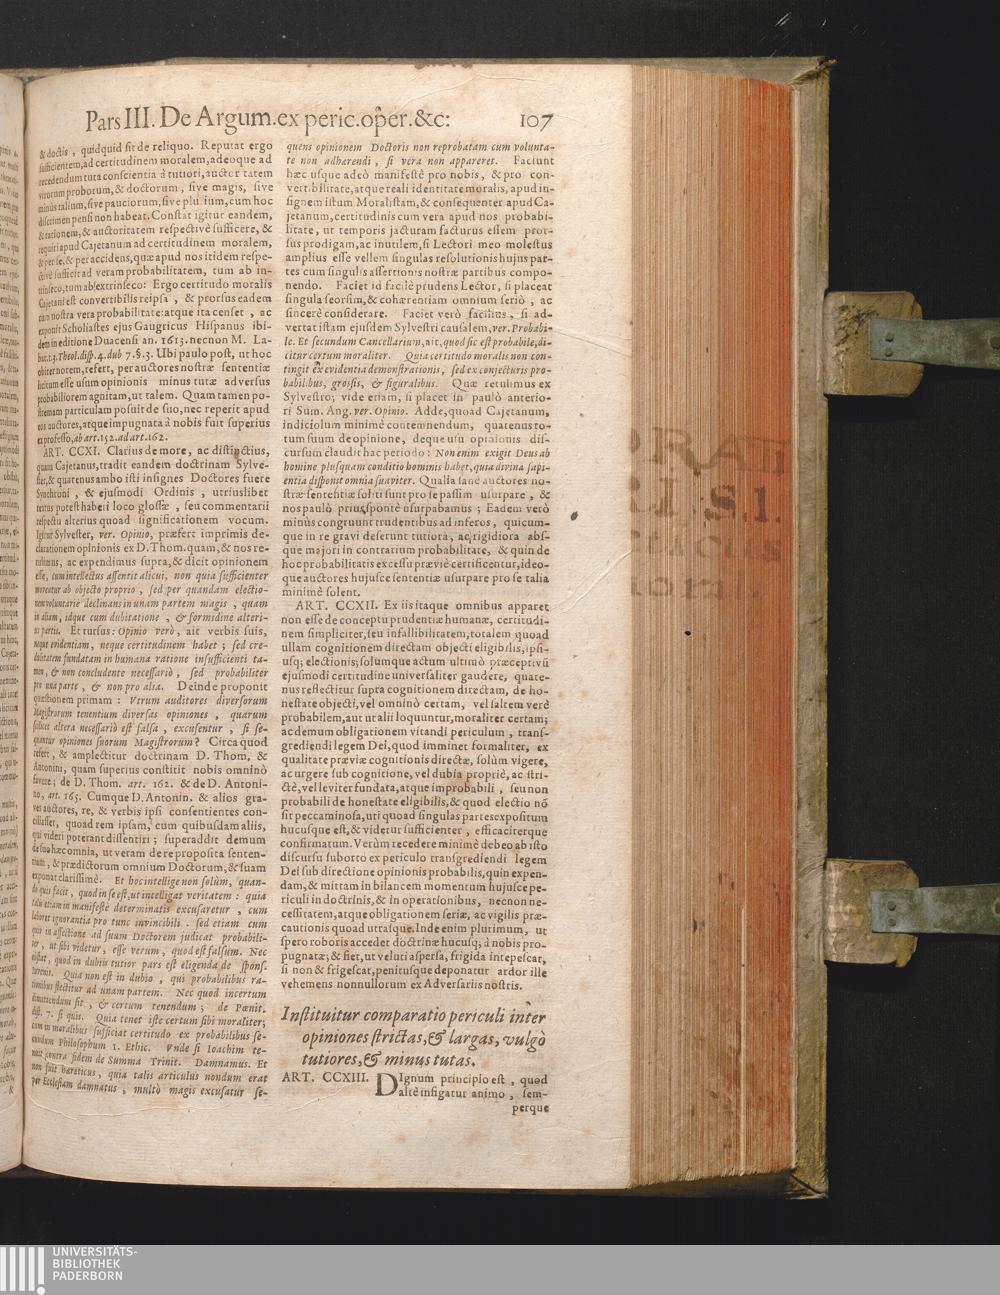 Pars III. De Argum. ex peric. oper. &c: 107
& doctis, quidquid sit de reliquo. Reputat ergo
sufficientem, ad certitudinem moralem, adeoque ad
recedendum tuta conscientia à tutiori, auctoritatem
virorum proborum, & doctorum, sive magis, sive
minùs talium, sive pauciorum, sive plurium, cum hoc
discrimen pensi non habeat. Constat igitur eandem,
& rationem, & auctoritatem respectivè sufficere, &
requiri apud Cajetanum ad certitudinem moralem,
& per se, & per accidens, quæ apud nos itidem respe-
ctivè sufficit ad veram probabilitatem, tum ab in-
trinseco, tum ab extrinseco: Ergo certitudo moralis
Cajetani est convertibilis reipsa, & prorsus eadem
cum nostra vera probabilitate: atque ita censet, ac
exponit Scholiastes ejus Gaugricus Hispanus ibi-
dem in editione Duacensi an. 1613. necnon M. La-
bat. t. 3. Theol. disp. 4. dub 7. §. 3. Ubi paulo post, ut hoc
obiter notem, refert, per auctores nostræ sententiæ
licitum esse usum opinionis minus tutæ adversus
probabiliorem agnitam, ut talem. Quam tamen po-
stremam particulam posuit de suo, nec reperit apud
eos auctores, atque impugnata à nobis fuit superius
ex professo, ab art. 152. ad art. 162.
ART. CCXI. Clarius de more, ac distinctius,
quam Cajetanus, tradit eandem doctrinam Sylve-
ster, & quatenus ambo isti insignes Doctores fuere
Synchroni, & ejusmodi Ordinis, utriuslibet
textus potest haberi loco glossæ, seu commentarii
respectu alterius quoad significationem vocum.
Igitur Sylvester, ver. Opinio, præfert imprimis de-
clarationem opinionis ex D. Thom. quam, & nos re-
tulimus, ac expendimus supra, & dicit opinionem
esse, cum intellectus assentit alicui, non quia sufficienter
moveatur ab objecto proprio, sed per quandam electio-
nem voluntariè declinans in unam partem magis, quam
in aliam, idque cum dubitatione, & formidine alteri-
us partis. Et rursus: Opinio verò, ait verbis suis,
neque evidentiam, neque certitudinem habet; sed cre-
dulitatem fundatam in humana ratione insufficienti ta-
men, & non concludente necessariò, sed probabiliter
pro una parte, & non pro alia. Deinde proponit
quæstionem primam: Utrum auditores diversorum
Magistrorum tenentium diversas opiniones, quarum
scilicet altera necessariò est falsa, excusentur, si se-
quantur opiniones suorum Magistrorum? Circa quod
refert, & amplectitur doctrinam D. Thom, &
Antonini, quam superius constitit nobis omninò
favere; de D. Thom. art. 162. & de D. Antoni-
no, art. 165. Cumque D. Antonin. & alios gra-
ves auctores, re, & verbis ipsi consentientes con-
ciliasset, quoad rem ipsam, cum quibusdam aliis,
qui videri poterant dissentiri; superaddit demum
de suo hæc omnia, ut veram de re proposita senten-
tiam, & prædictorum omnium Doctorum, & suam
exponat clarissimè. Et hoc intellige non solùm, quan-
do quis facit, quod in se est, ut intelligat veritatem: quia
talis etiam in manifestè determinatis excusaretur, cum
laboret ignorantia pro tunc invincibili. sed etiam cum
quis in assectione ad suum Doctorem judicat probabili-
ter, ut sibi videtur, esse verum, quod est falsum. Nec
obstat, quod in dubiis tutior pars est eligenda de spons.
juvenis. Quia non est in dubio, qui probabilibus ra-
tionibus flectitur ad unam partem. Nec quod incertum
dimittendum sit, & certum tenendum; de Pœnit.
dist. 7. si quis. Quia tenet iste certum sibi moraliter;
cum in moralibus sufficiat certitudo ex probabilibus se-
cundum Philosophum 1. Ethic. Unde si Ioachim te-
nuit contra fidem de Summa Trinit. Damnamus. Et
non fuit hæreticus, quia talis articulus nondum erat
per Ecclesiam damnatus, multò magis excusatur se-
quens opinionem Doctoris non reprobatam cum volunta-
te non adharendi, si vera non appareret. Faciunt
hæc usque adeò manifestè pro nobis, & pro con-
vertibilitate, atque reali identitate moralis, apud in-
signem istum Moralistam, & consequenter apud Ca-
jetanum, certitudinis cum vera apud nos probabi-
litate, ut temporis jacturam facturus essem pror-
sus prodigam, ac inutilem, si Lectori meo molestus
amplius esse vellem singulas resolutionis hujus par-
tes cum singulis assertionis nostræ partibus compo-
nendo. Faciet id facilè prudens Lector, si placeat
singula seorsim, & cohærentiam omnium seriò, ac
sincerè considerare. Faciet verò facilius, si ad-
vertat istam ejusdem Sylvestri causalem, ver. Probabi-
le. Et secundum Cancellarium, ait, quod sic est probabile, di-
citur certum moraliter. Quia certitudo moralis non con-
tingit ex evidentia demonstrationis, sed ex conjecturis pro-
babilibus, grossis, & figuralibus. Quæ retulimus ex
Sylvestro; vide etiam, si placet in paulò anterio-
ri Sum. Ang. ver. Opinio. Adde, quoad Cajetanum,
indiciolum minimè contemnendum, quatenus to-
tum suum de opinione, deque usu opinionis dis-
cursum claudit hac periodo: Non enim exigit Deus ab
homine plusquam conditio hominis habet, quia divina sapi-
entia disponit omnia suaviter. Qualia sane auctores no-
stræ sententiæ soliti sunt pro se passim usurpare, &
nos paulò prius sponte usurpabamus; Eadem verò
minùs congruunt trudentibus ad inferos, quicum-
que in re gravi deserunt tutiora, ac rigidiora abs-
que majori in contrarium probabilitate, & quin de
hoc probabilitatis excessu præviè certificentur, ideo-
que auctores hujusce sententiæ usurpare pro se talia
minimè solent.
ART. CCXII. Ex iis itaque omnibus apparet
non esse de conceptu prudentiæ humanæ, certitudi-
nem simpliciter, seu infallibilitatem, totalem quoad
ullam cognitionem directam objecti eligibilis, ipsi-
usq; electionis; solumque actum ultimò præceptivū
ejusmodi certitudine universaliter gaudere, quate-
nus reflectitur supra cognitionem directam, de ho-
nestate objecti, vel omninò certam, vel saltem verè
probabilem, aut ut alii loquuntur, moraliter certam;
ac demum obligationem vitandi periculum, trans-
grediendi legem Dei, quod imminet formaliter, ex
qualitate præviæ cognitionis directæ, solùm vigere,
ac urgere sub cognitione, vel dubia propriè, ac stri-
ctè, vel leviter fundata, atque improbabili, seu non
probabili de honestate eligibilis, & quod electio nō
sit peccaminosa, uti quoad singulas partes expositum
hucusque est, & videtur sufficienter, efficaciterque
confirmatum. Verùm recedere minimè debeo ab isto
discursu suborto ex periculo transgrediendi legem
Dei sub directione opinionis probabilis, quin expen-
dam, & mittam in bilancem momentum hujusce pe-
riculi in doctrinis, & in operationibus, necnon ne-
cessitatem, atque obligationem seriæ, ac vigilis præ-
cautionis quoad utrasque. Inde enim plurimum, ut
spero roboris accedet doctrinæ hucusq; à nobis pro-
pugnatæ; & fiet, ut veluti aspersa, frigida intepescat,
si non & frigescat, penitusque deponatur ardor ille
vehemens nonnullorum ex Adversariis nostris.
Instituitur comparatio periculi inter
opiniones strictas, & largas, vulgò
tutiores, & minus tutas.
ART. CCXIII. DIgnum principio est, quod
altè insigatur animo, sem-
perque
UNIVERSITÄTS-
BIBLIOTHEK
PADERBORN